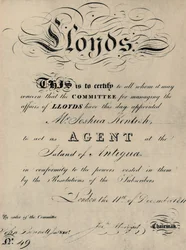 Lloyds.
THIS is to certify to all whom it may
concern that the COMMITTEE for managing the
affairs of LLOYDS have this day appointed
Mr Joshua Kentish,
to act as AGENT at the
Island of Antigua,
in conformity to the powers vested in them
by the Resolutions of the Subscribers
London the 11th of
By order of the Committee
Chairman
No 49